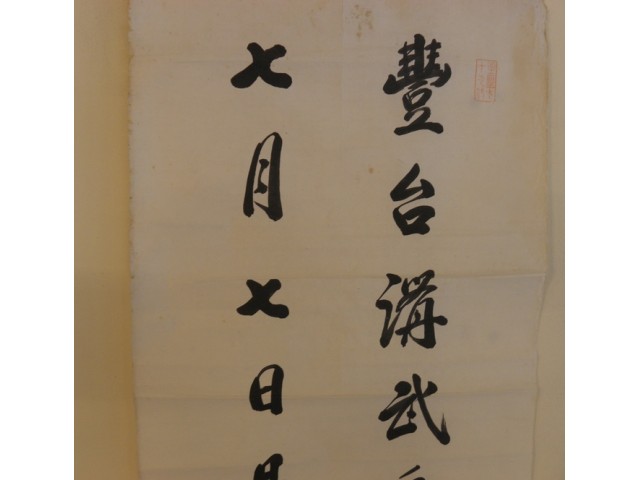 豐台講武
七月七日